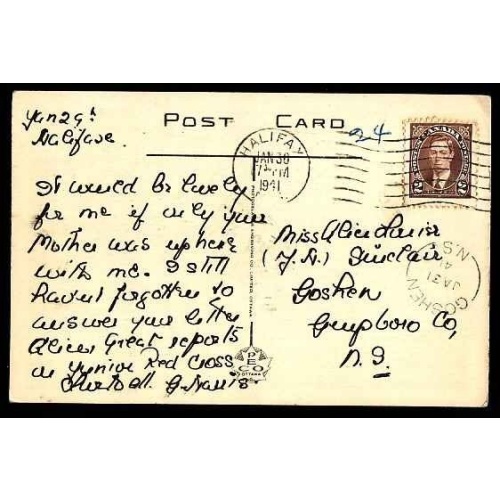 Jan 29th
Halifax
POST CARD
24
HALIFAX
JAN 30
7 PM
1941
CANADA
2 2
It would be lovely
for me if only your
Mother was up here
with me. I still
Havent forgotten to
answer your letter
Alice, Great reports
on Junior Red Cross
G. Harris
Miss Alice
(J. A.) Sinclair
Goshen
Guysboro Co,
N. S.
GOSHEN
JA 31
41
N.S.
PECO
OTTAWA